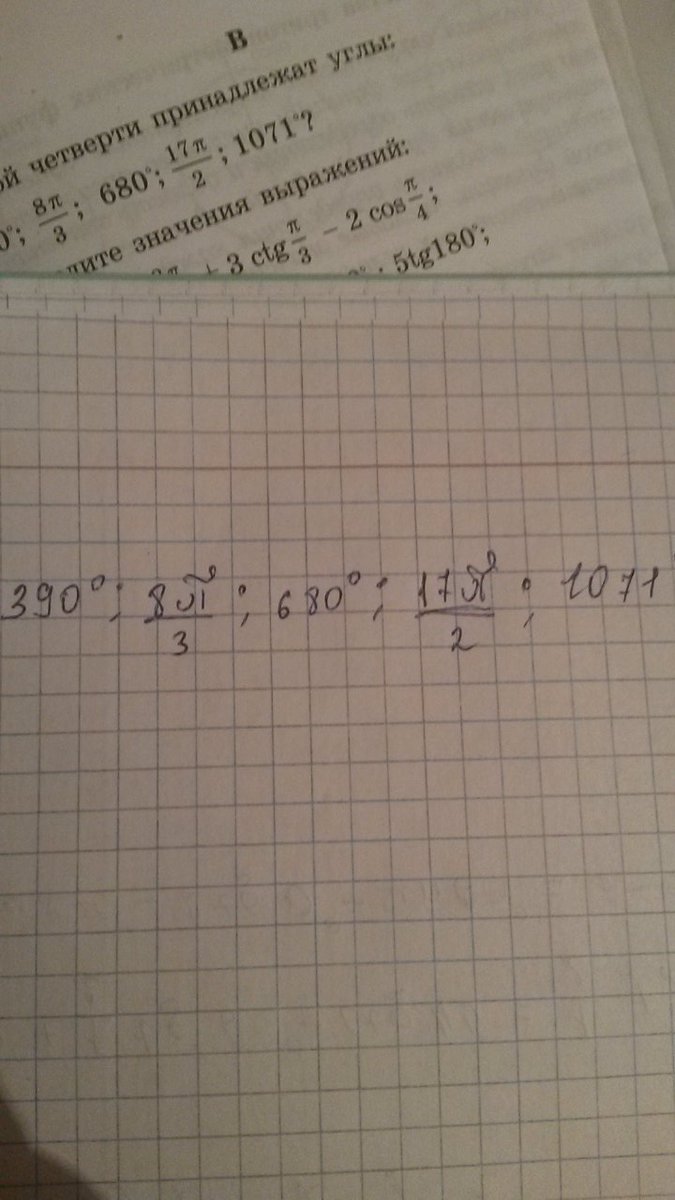 В
й четверти принадлежат углы:
0°; 8π/3; 680°; 17π/2; 1071°?
значения выражений:
+ 3 ctg π/3 − 2 cos π/4;
5tg180°;
390°; 8π/3; 680°; 17π/2; 1071